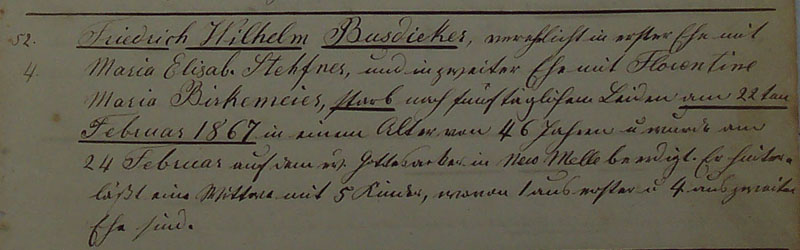 52. Friedrich Wilhelm Busdieker, verehlicht in erster Ehe mit
4. Maria Elisab. Stehfner, und in zweiter Ehe mit Florentine
Maria Birkemeier, starb nach fünftäglichem Leiden am 22ten
Februar 1867 in einem Alter von 46 Jahren u wurde am
24 Februar auf dem ev. Gottesacker in New Melle beerdigt. Er hinter=
läßt eine Wittwe mit 5 Kinder, wovon 1 aus erster u 4 aus zweiter
Ehe sind.